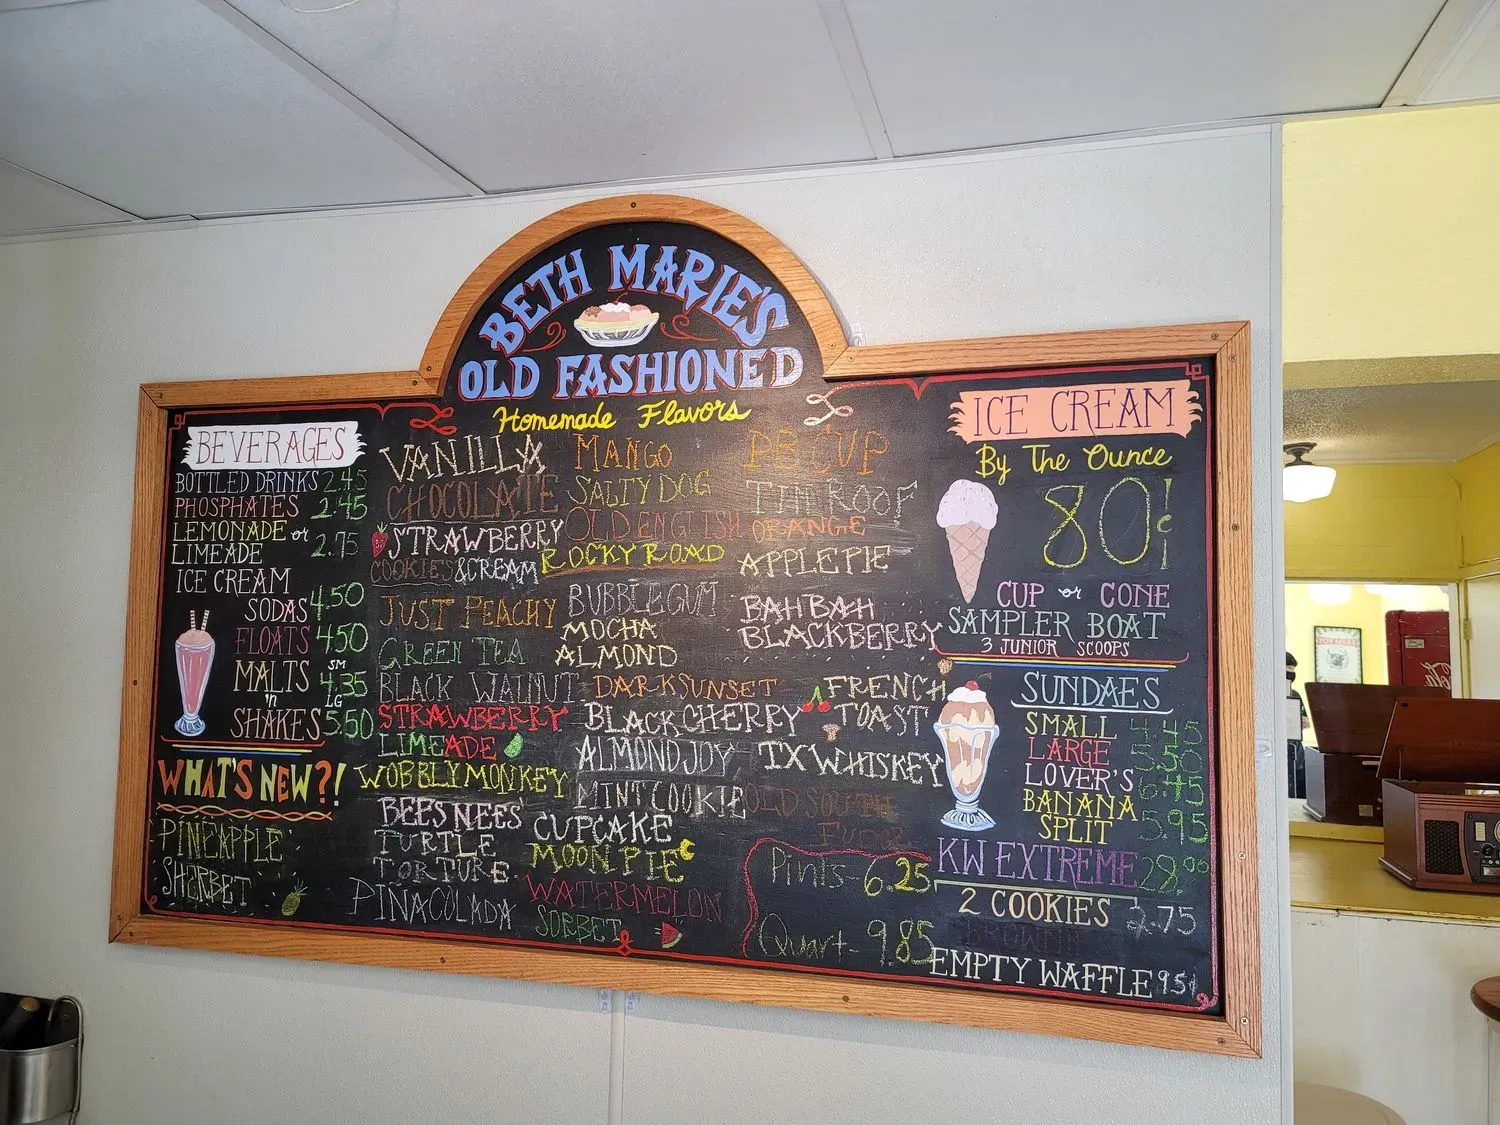 BETH MARIE'S
OLD FASHIONED
Homemade Flavors
BEVERAGES
BOTTLED DRINKS 2.45
PHOSPHATES 2.45
LEMONADE or
LIMEADE 2.75
ICE CREAM
SODAS 4.50
FLOATS 4.50
MALTS SM 4.35
'n LG
SHAKES 5.50
WHAT'S NEW?!
PINEAPPLE
SHERBET
VANILLA
CHOCOLATE
STRAWBERRY
COOKIES & CREAM
JUST PEACHY
GREEN TEA
BLACK WALNUT
STRAWBERRY
LIMEADE
WOBBLY MONKEY
BEES NEES'
TURTLE
TORTURE
PINA COLADA
MANGO
SALTY DOG
OLD ENGLISH
ROCKY ROAD
BUBBLEGUM
MOCHA
ALMOND
DARK SUNSET
BLACK CHERRY
ALMOND JOY
MINT COOKIE
CUPCAKE
MOON PIE
WATERMELON
SORBET
PB CUP
TIN ROOF
ORANGE
APPLE PIE
BAH BAH
BLACKBERRY
FRENCH
TOAST
TX WHISKEY
OLD SOUTH
FUDGE
Pints - 6.25
Quart - 9.85
ICE CREAM
By The Ounce
80¢
CUP or CONE
SAMPLER BOAT
3 JUNIOR SCOOPS
SUNDAES
SMALL 4.45
LARGE 5.50
LOVER'S 6.45
BANANA
SPLIT 5.95
KW EXTREME 28.00
2 COOKIES 2.75
BROWNIE
EMPTY WAFFLE 95¢